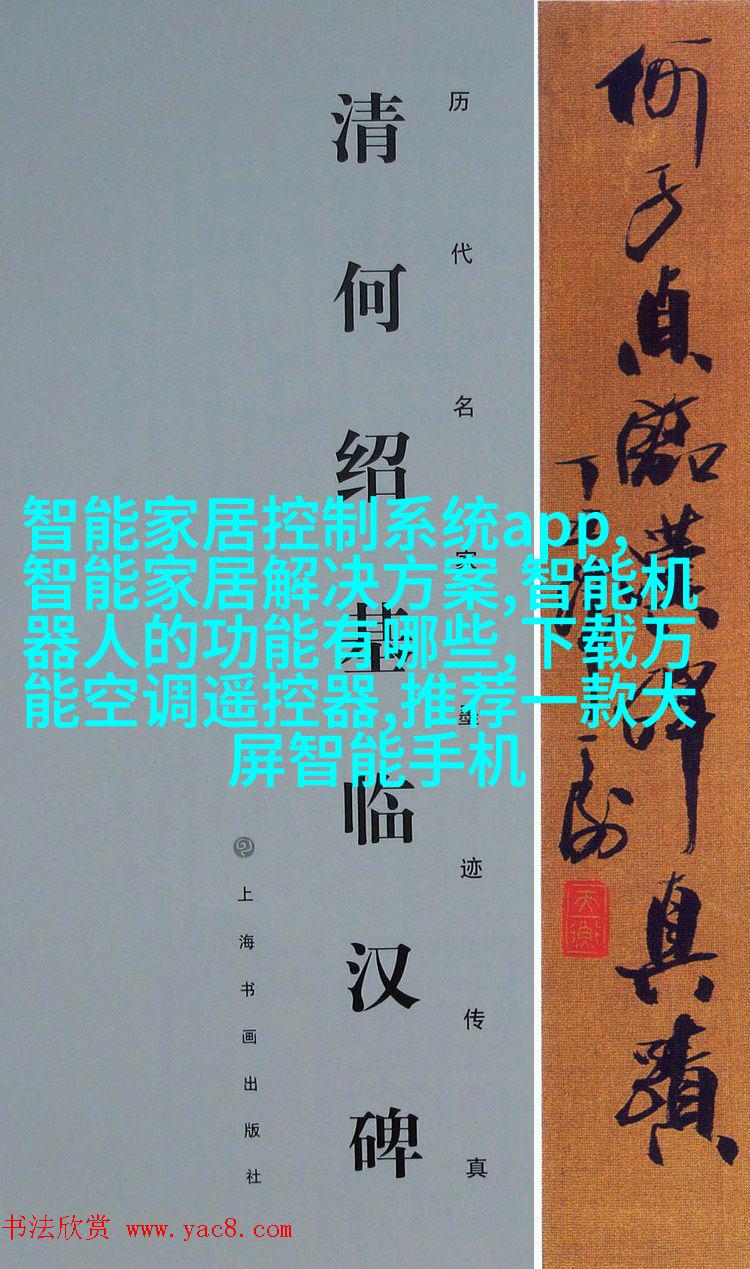 历代名家墨迹传真
清何绍基临汉碑
上海书画出版社
何子貞臨漢碑真蹟
天衡
智能家居控制系统app,
智能家居解决方案,智能机
器人的功能有哪些,下载万
能空调遥控器,推荐一款大
屏智能手机
书法欣赏 www.yac8.com